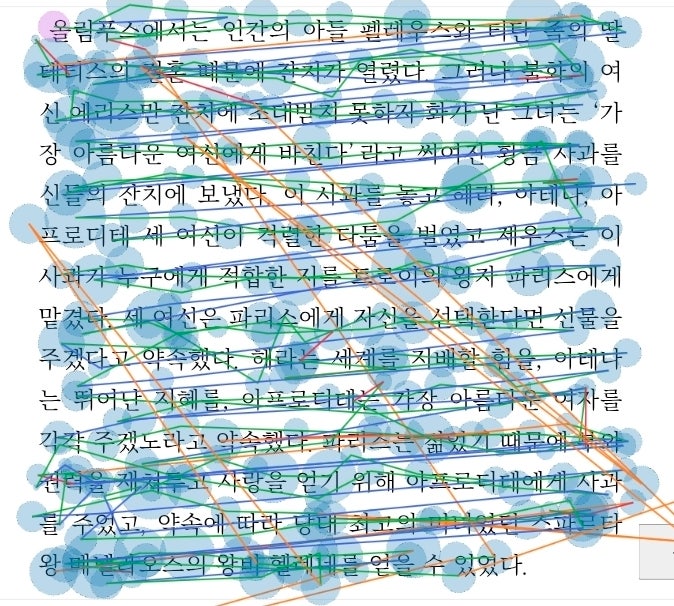 올림푸스에서는 인간의 아들 펠레우스와 티탄 족의 딸
테티스의 결혼 때문에 잔치가 열렸다. 그러나 불화의 여
신 에리스만 잔치에 초대받지 못하자 화가 난 그녀는 ‘가
장 아름다운 여신에게 바친다’라고 씌여진 황금 사과를
신들의 잔치에 보냈다. 이 사과를 놓고 헤라, 아테나, 아
프로디테 세 여신이 격렬한 다툼을 벌였고 제우스는 이
사과가 누구에게 적합한 지를 트로이의 왕자 파리스에게
맡겼다. 세 여선은 파리스에게 자신을 선택한다면 선물을
주겠다고 약속했다. 헤라는 세계를 지배할 힘을, 아테나
는 뛰어난 지혜를, 아프로디테는 가장 아름다운 여자를
각각 주겠노라고 약속했다. 파리스는 젊었기 때문에 부와
권력을 제쳐두고 사랑을 얻기 위해 아프로디테에게 사과
를 주었고, 약속에 따라 당대 최고의 미녀였던 스파르타
왕 메넬라우스의 왕비 헬레네를 얻을 수 있었다.